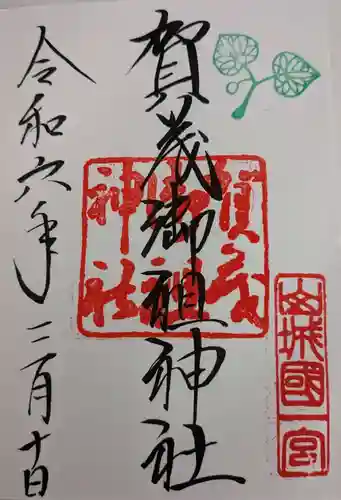 賀茂御祖神社
賀茂御祖神社
山城國一宮
令和六年二月十日